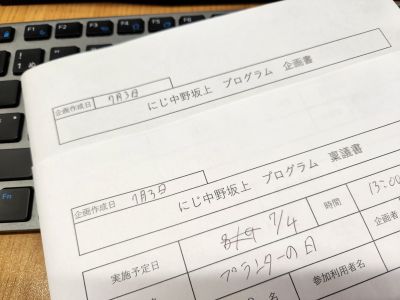 企画作成日 7月3日
にじ中野坂上 プログラム 企画書
企画作成日 7月3日
にじ中野坂上 プログラム 稟議書
実施予定日 7/4 時間 13:00
プランターの日 企画者
参加利用者名
Fn